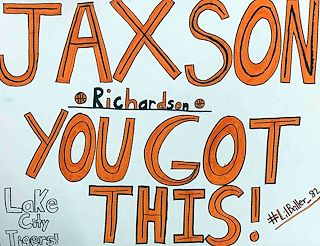 JAXSON
Richardson
YOU GOT
THIS!
#LilBaller_32
Lake
City
Tigers!